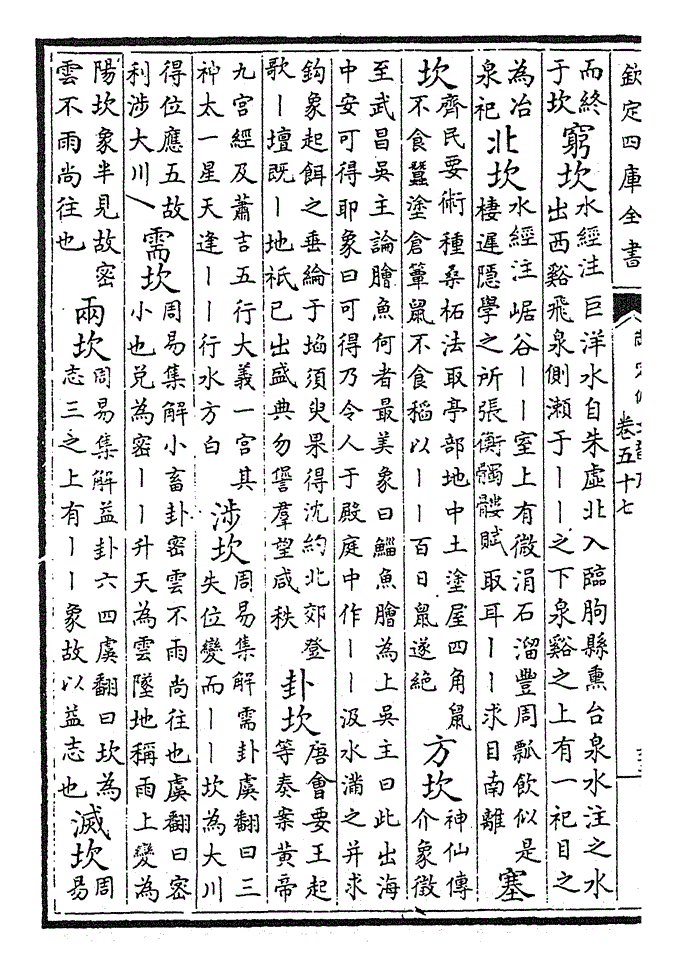 欽定四庫全書
卷五十七
而終
于坎
窮坎
水經注巨洋水自朱虛北入臨朐縣熏台泉水注之水
出西谿飛泉側瀨于丨丨之下泉谿之上有一祀目之
為冶
泉祀
北坎
水經注崌谷丨丨室上有微涓石溜豐周瓢飲似是
棲遲隱學之所張衡髑髏賦取耳丨丨求目南離
塞
坎
齊民要術種桑柘法取亭部地中土塗屋四角鼠
不食蠶塗倉簞鼠不食稻以丨丨百日鼠遂絕
方坎
神仙傳
介象徵
至武昌吳主論膾魚何者最美象曰鯔魚膾為上吳主曰此出海
中安可得耶象曰可得乃令人于殿庭中作丨丨汲水滿之并求
鈎象起餌之垂綸于埳須臾果得沈約北郊登
歌丨壇既丨地祇已出盛典勿諐羣望咸秩
卦坎
唐會要王起
等奏案黃帝
九宮經及蕭吉五行大義一宮其
神太一星天逢丨丨行水方白
涉坎
周易集解需卦虞翻曰三
失位變而丨丨坎為大川
得位應五故
利涉大川
需坎
周易集解小畜卦密雲不雨尚往也虞翻曰密
小也兌為密丨丨升天為雲墜地稱雨上變為
陽坎象半見故密
雲不雨尚往也
兩坎
周易集解益卦六四虞翻曰坎為
志三之上有丨丨象故以益志也
滅坎
周
易